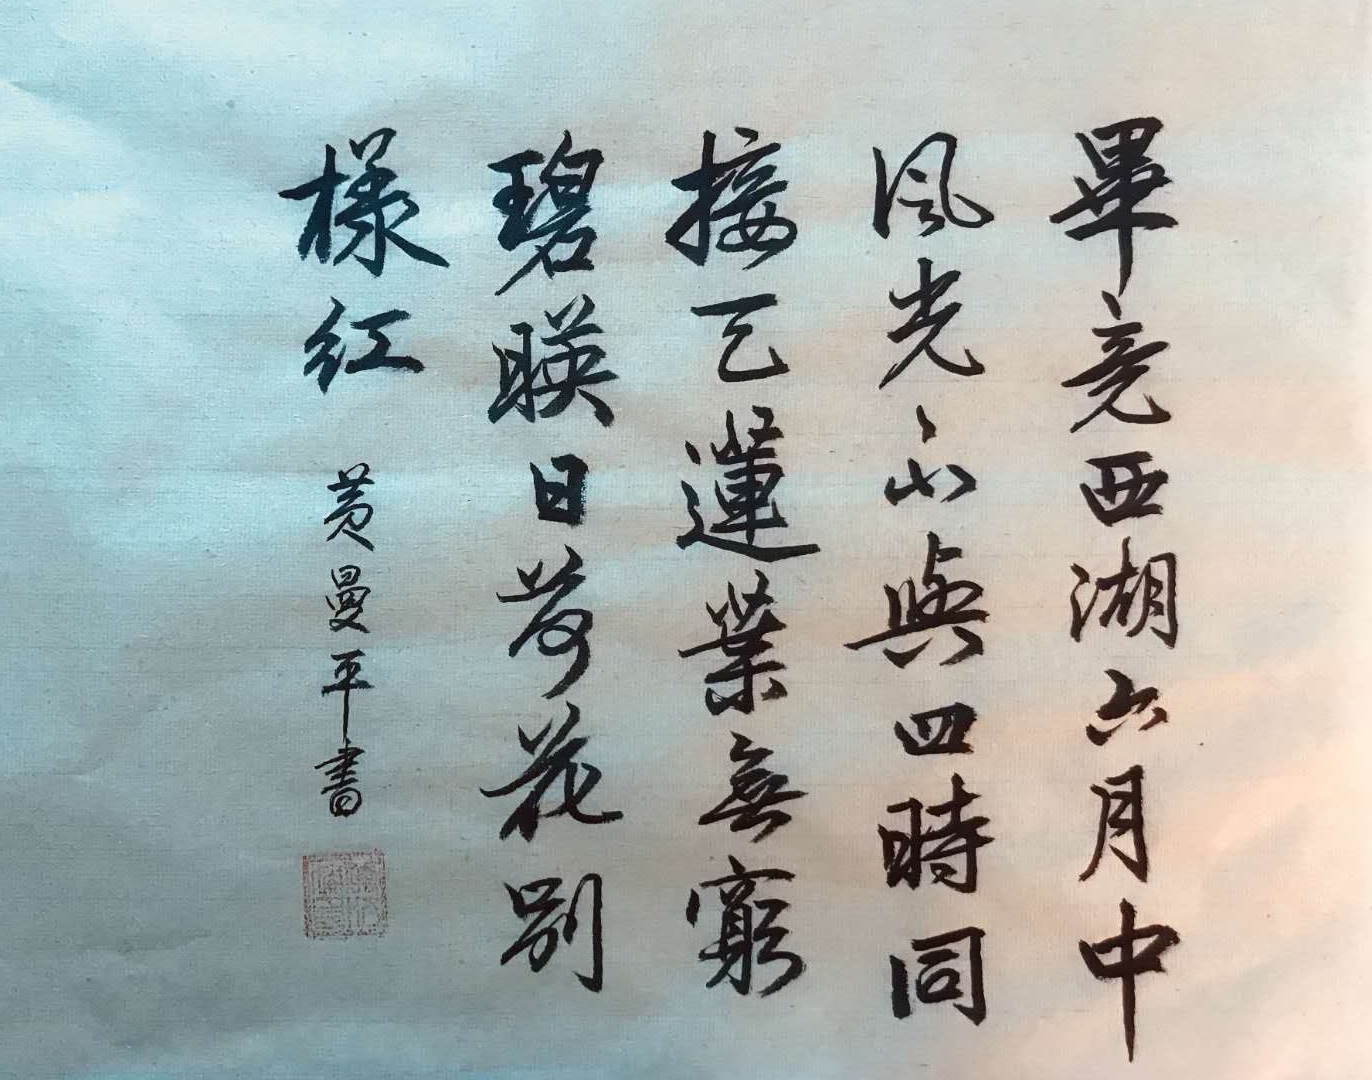 畢竟西湖六月中
風光不與四時同
接天蓮葉無窮
碧暎日荷花別
樣紅
黃曼平書